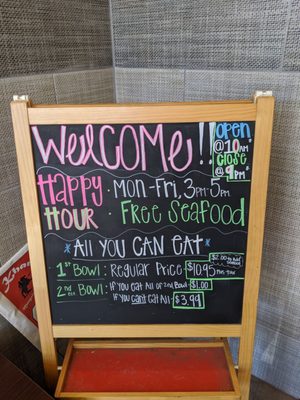 Welcome!!
Open
@ 10AM
Close
@ 9PM
Happy
Hour
: Mon-Fri, 3PM-5PM
: Free Seafood
* All You Can Eat *
1st Bowl: Regular Price $10.95
2nd Bowl: If you eat All of 2nd Bowl- $1.00
If you can't eat All- $3.99
$2.00